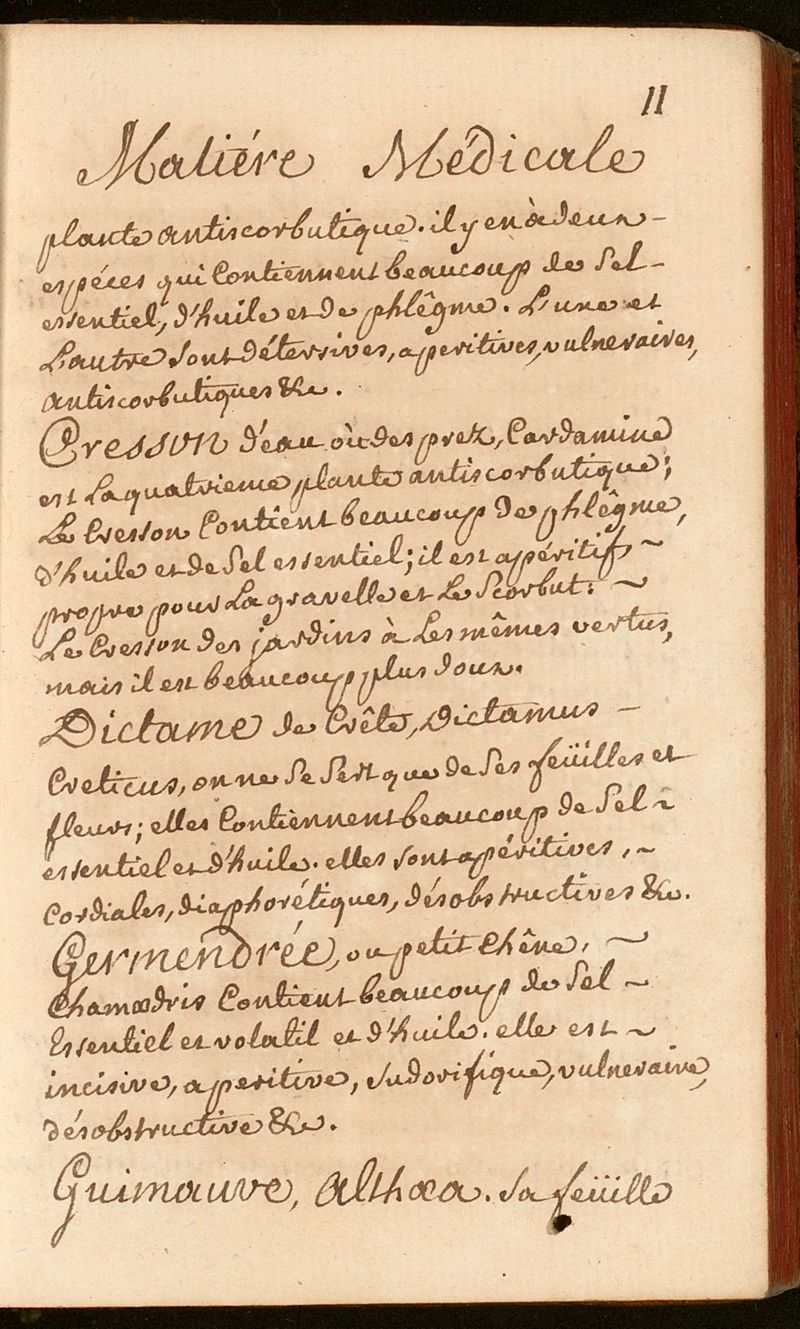 11
Matiére Médicale
plante antiscorbutique. il y en à deux -
espéces qui Contiennent beaucoup de Sel -
essentiel, d'huile et de phlêgme. L'une et
L'autre sont détersives, aperitives, vulneraires,
antiscorbutiques &c.
Cresson d'eau où des prez, Cardamine
est La quatrieme plante antiscorbutique;
Le Cresson Contient beaucoup de phlêgme,
d'huile et de Sel essentiel; il est apéritif ~
propre pour La gravelle et Le Scorbut: ~
Le Cresson des jardins à Les mêmes vertus,
mais il est beaucoup plus doux.
Dictame de Crête, Dictamus -
Creticus, on ne Se Sert que de Ses feüilles et
fleurs; elles Contiennent beaucoup de Sel ~
essentiel et d'huile. elles sont apéritives, ~
Cordiales, diaphorétiques, désobstructives &c.
Germendrée, ou petit Chêne, ~
Chamœdris Contient beaucoup de Sel ~
Essentiel et volatil et d'huile. elle est ~
incisive, aperitive, sudorifique, vulneraire,
désobstructive &c.
Guimauve, Althœa. Sa feüille